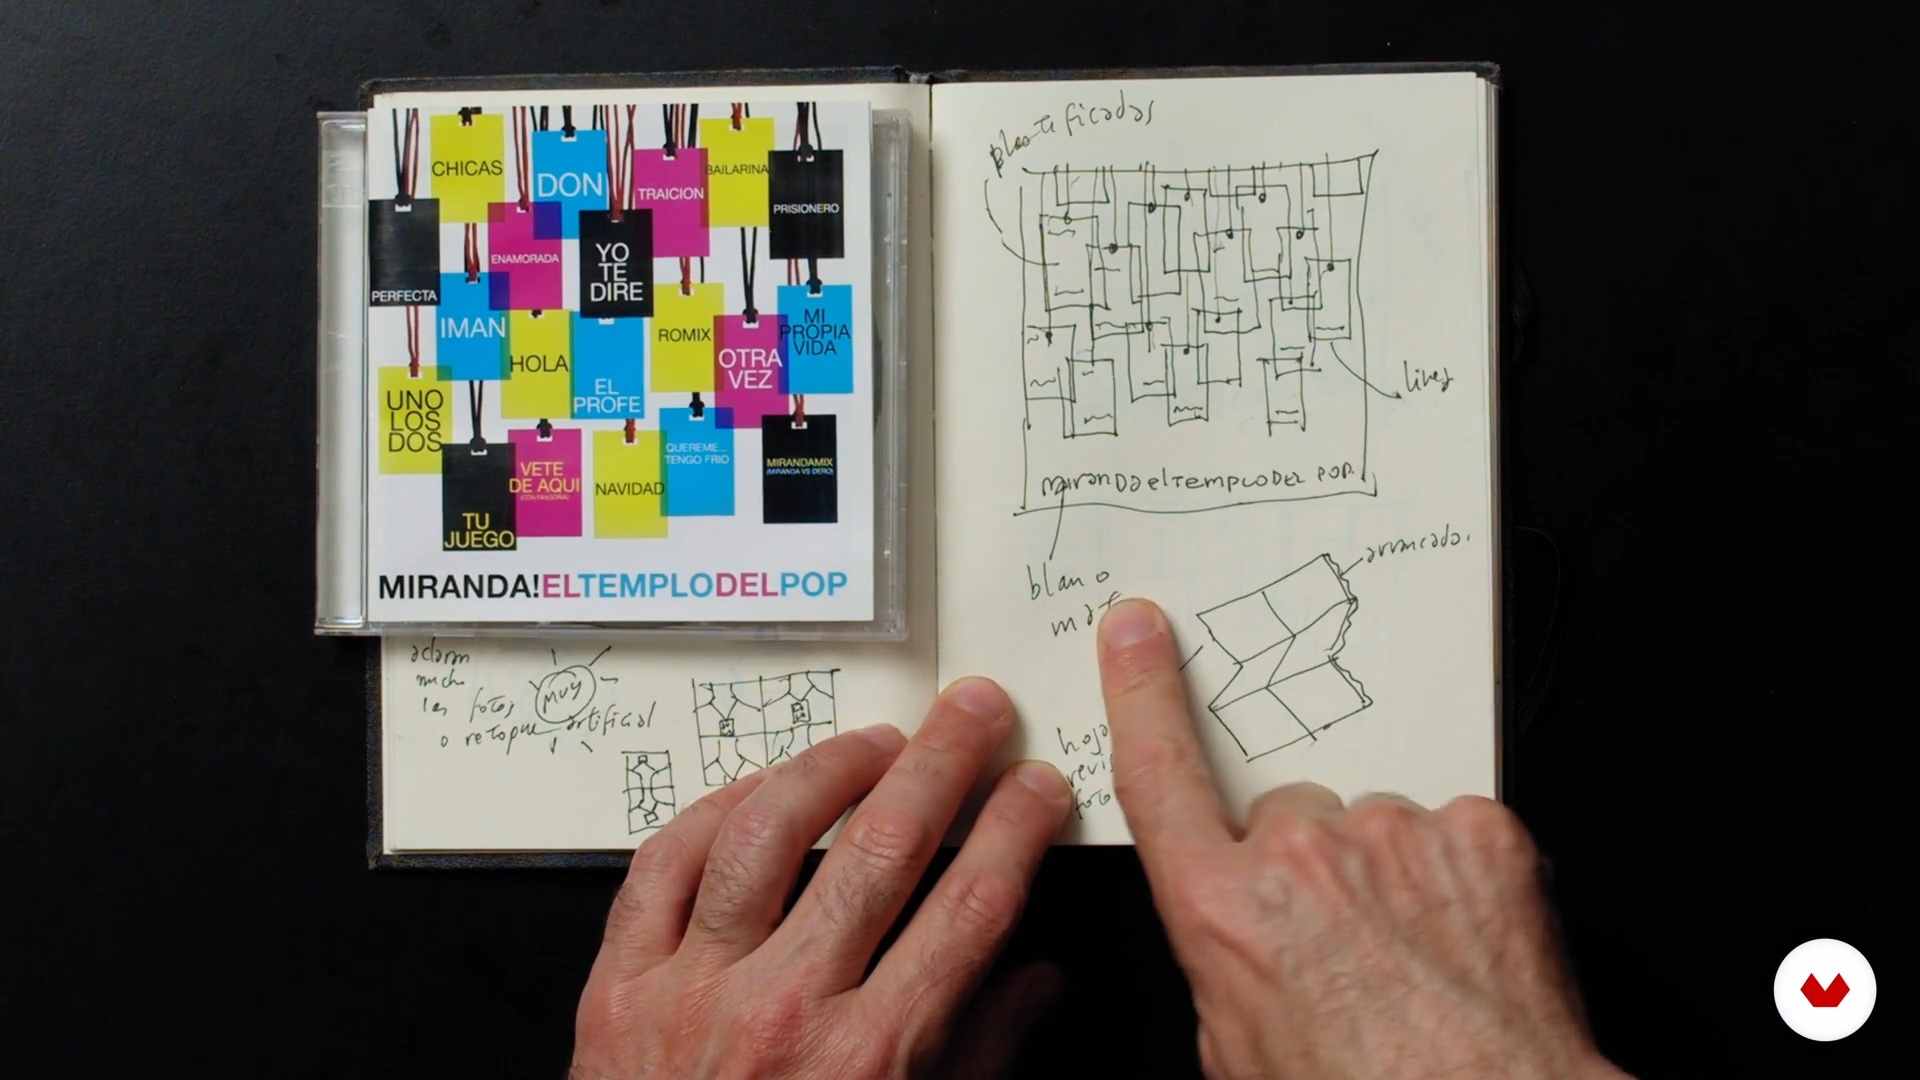 CHICAS
DON
TRAICION
BAILARINA
PRISIONERO
PERFECTA
ENAMORADA
YO
TE
DIRE
IMAN
HOLA
EL
PROFE
ROMIX
OTRA
VEZ
MI
PROPIA
VIDA
UNO
LOS
DOS
TU
JUEGO
VETE
DE AQUI
(CON FANGORIA)
NAVIDAD
QUEREME...
TENGO FRIO
MIRANDAMIX
(MIRANDA VS DERO)
MIRANDA!ELTEMPLODELPOP
aclaran
las fotos
o retoque artificial
MUY
plastificadas
lines
miranda el Templo Del POP.
arrancado.
hoja